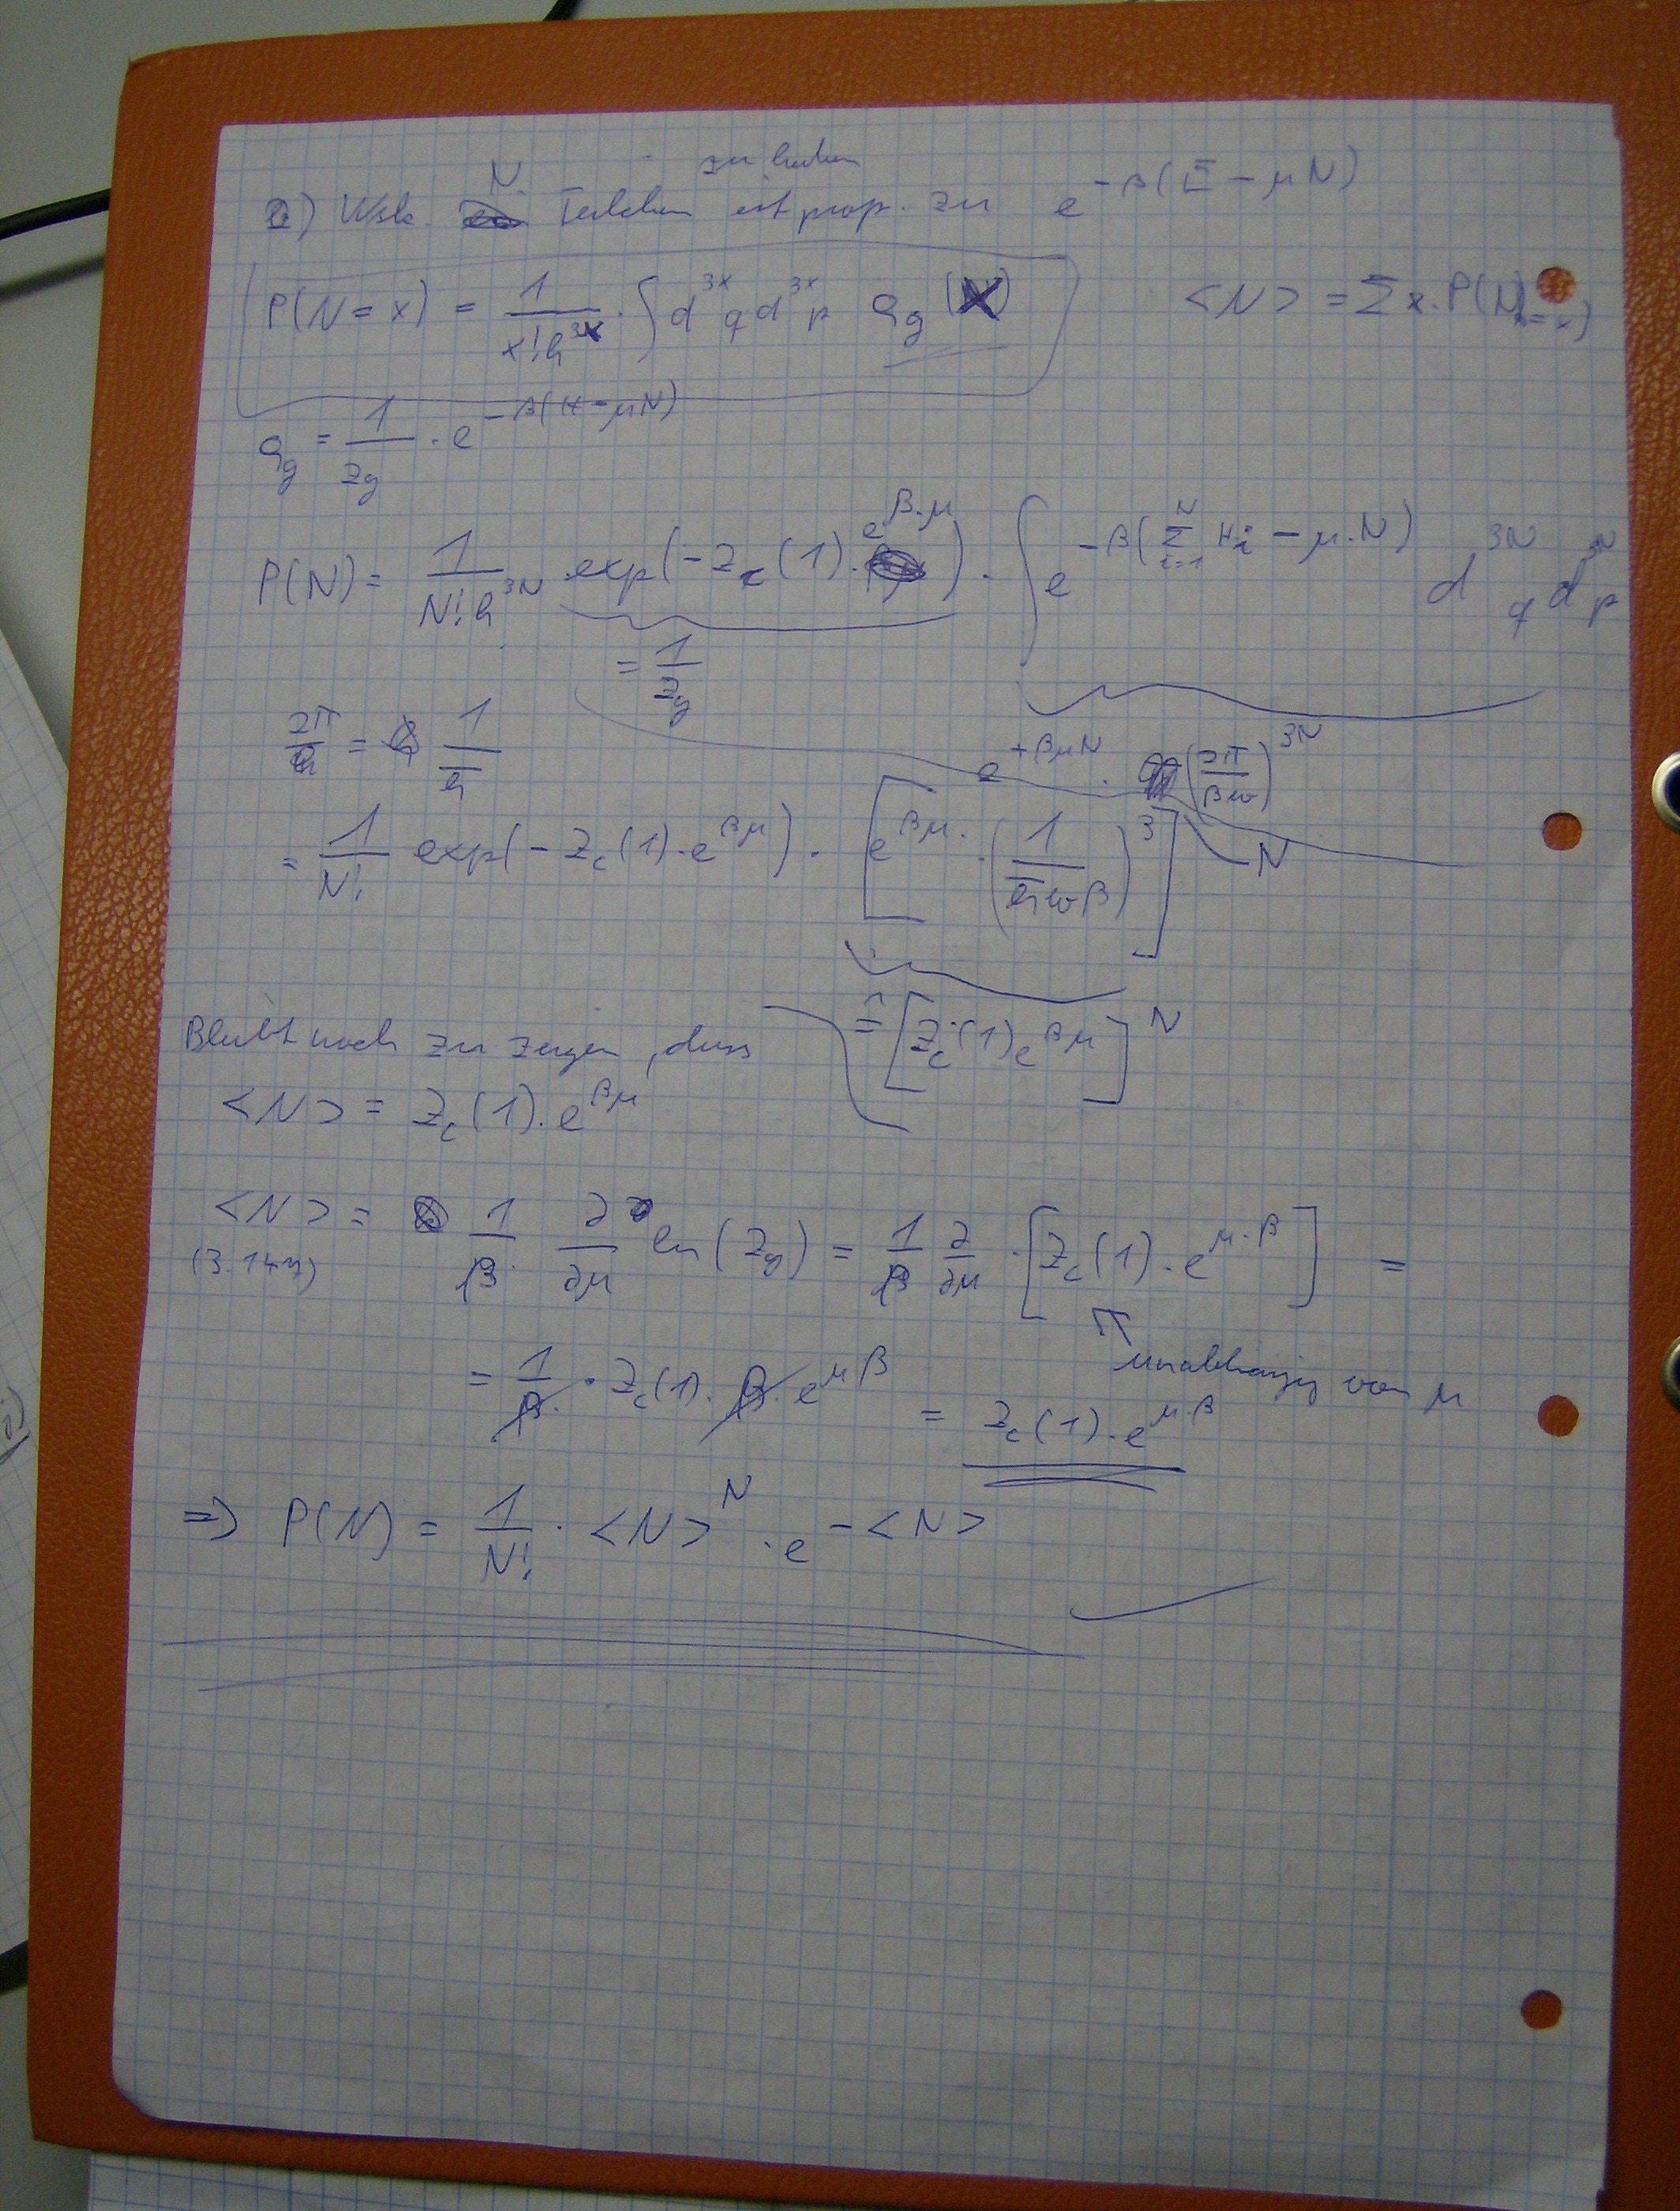 a) Wsk. N Teilchen zu haben ist prop. zu e^{-β(E-μN)}
P(N=x) = 1/(x! h^{3x}) · ∫ d^{3x}q d^{3x}p ρ_g (X)   <N> = Σ x · P(N=x)
ρ_g = 1/z_g · e^{-β(H-μN)}
P(N) = 1/(N! h^{3N}) · exp(-Z_c(1) · e^{β·μ}) · ∫ e^{-β(Σ_{i=1}^{N} H_i - μ·N)} d^{3N}q d^{3N}p
= 1/Z_g
2π/h = 1/ħ   e^{+βμN} · (2π/βω)^{3N}
= 1/N! exp(-Z_c(1) · e^{βμ}) · [e^{βμ} · (1/(ħωβ))^3]^N
≙ [Z_c(1) e^{βμ}]^N
Bleibt noch zu zeigen, dass
<N> = Z_c(1) · e^{βμ}
<N> = 1/β · ∂/∂μ ln(Z_g) = 1/β ∂/∂μ · [Z_c(1) · e^{μ·β}] =
(3.147)
unabhängig von μ
= 1/β · Z_c(1) · β · e^{μβ} = Z_c(1) · e^{μ·β}
=> P(N) = 1/N! · <N>^N · e^{-<N>}